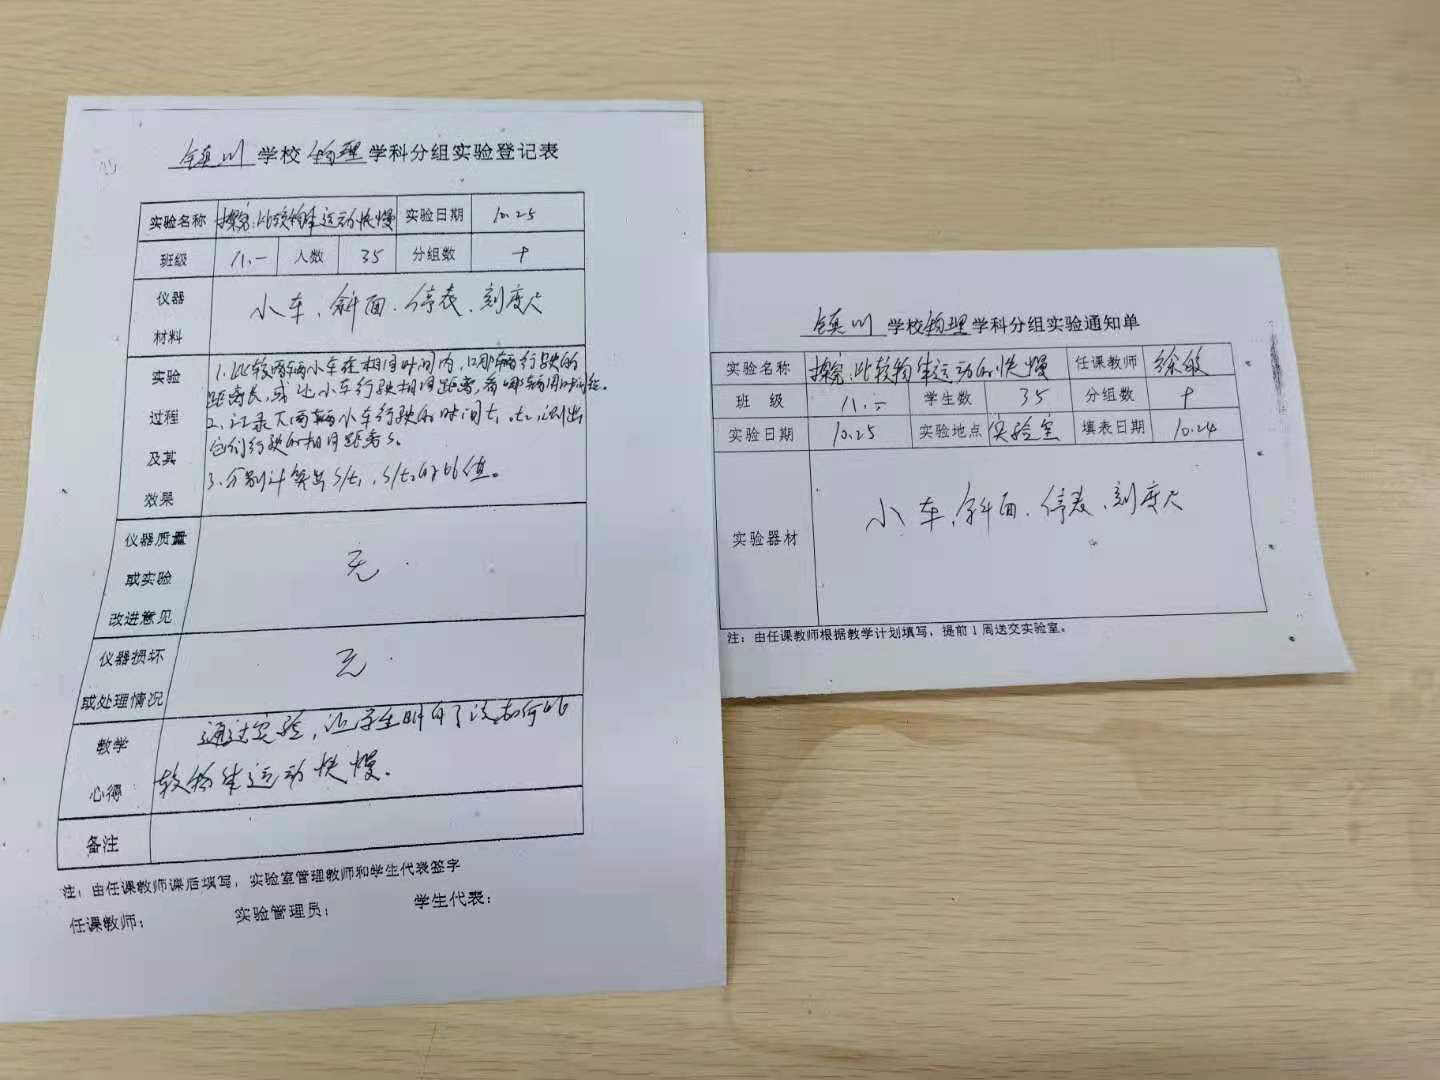 镇川 学校 物理 学科分组实验登记表
实验名称 探究:比较物体运动快慢 实验日期 10.25
班级 八.一 人数 35 分组数 十
仪器材料 小车、斜面、停表、刻度尺
实验过程及其效果 1.比较两辆小车在相同时间内,哪辆行驶的
距离长,或让小车行驶相同距离,看哪辆用时
2.记录下两辆小车行驶的时间t₁、t₂,测出
它们行驶的相同距离S。
3.分别计算出S/t₁、S/t₂的比值。
仪器质量或实验改进意见 无.
仪器损坏或处理情况 无.
教学心得 通过实验,让学生明白了该如何比
较物体运动快慢.
备注
注:由任课教师课后填写,实验室管理教师和学生代表签字
任课教师: 实验管理员: 学生代表:
镇川 学校 物理 学科分组实验通知单
实验名称 探究:比较物体运动的快慢 任课教师 徐敏
班 级 八.一 学生数 35 分组数 十
实验日期 10.25 实验地点 实验室 填表日期 10.24
实验器材 小车、斜面、停表、刻度尺
注:由任课教师根据教学计划填写,提前1周送交实验室。